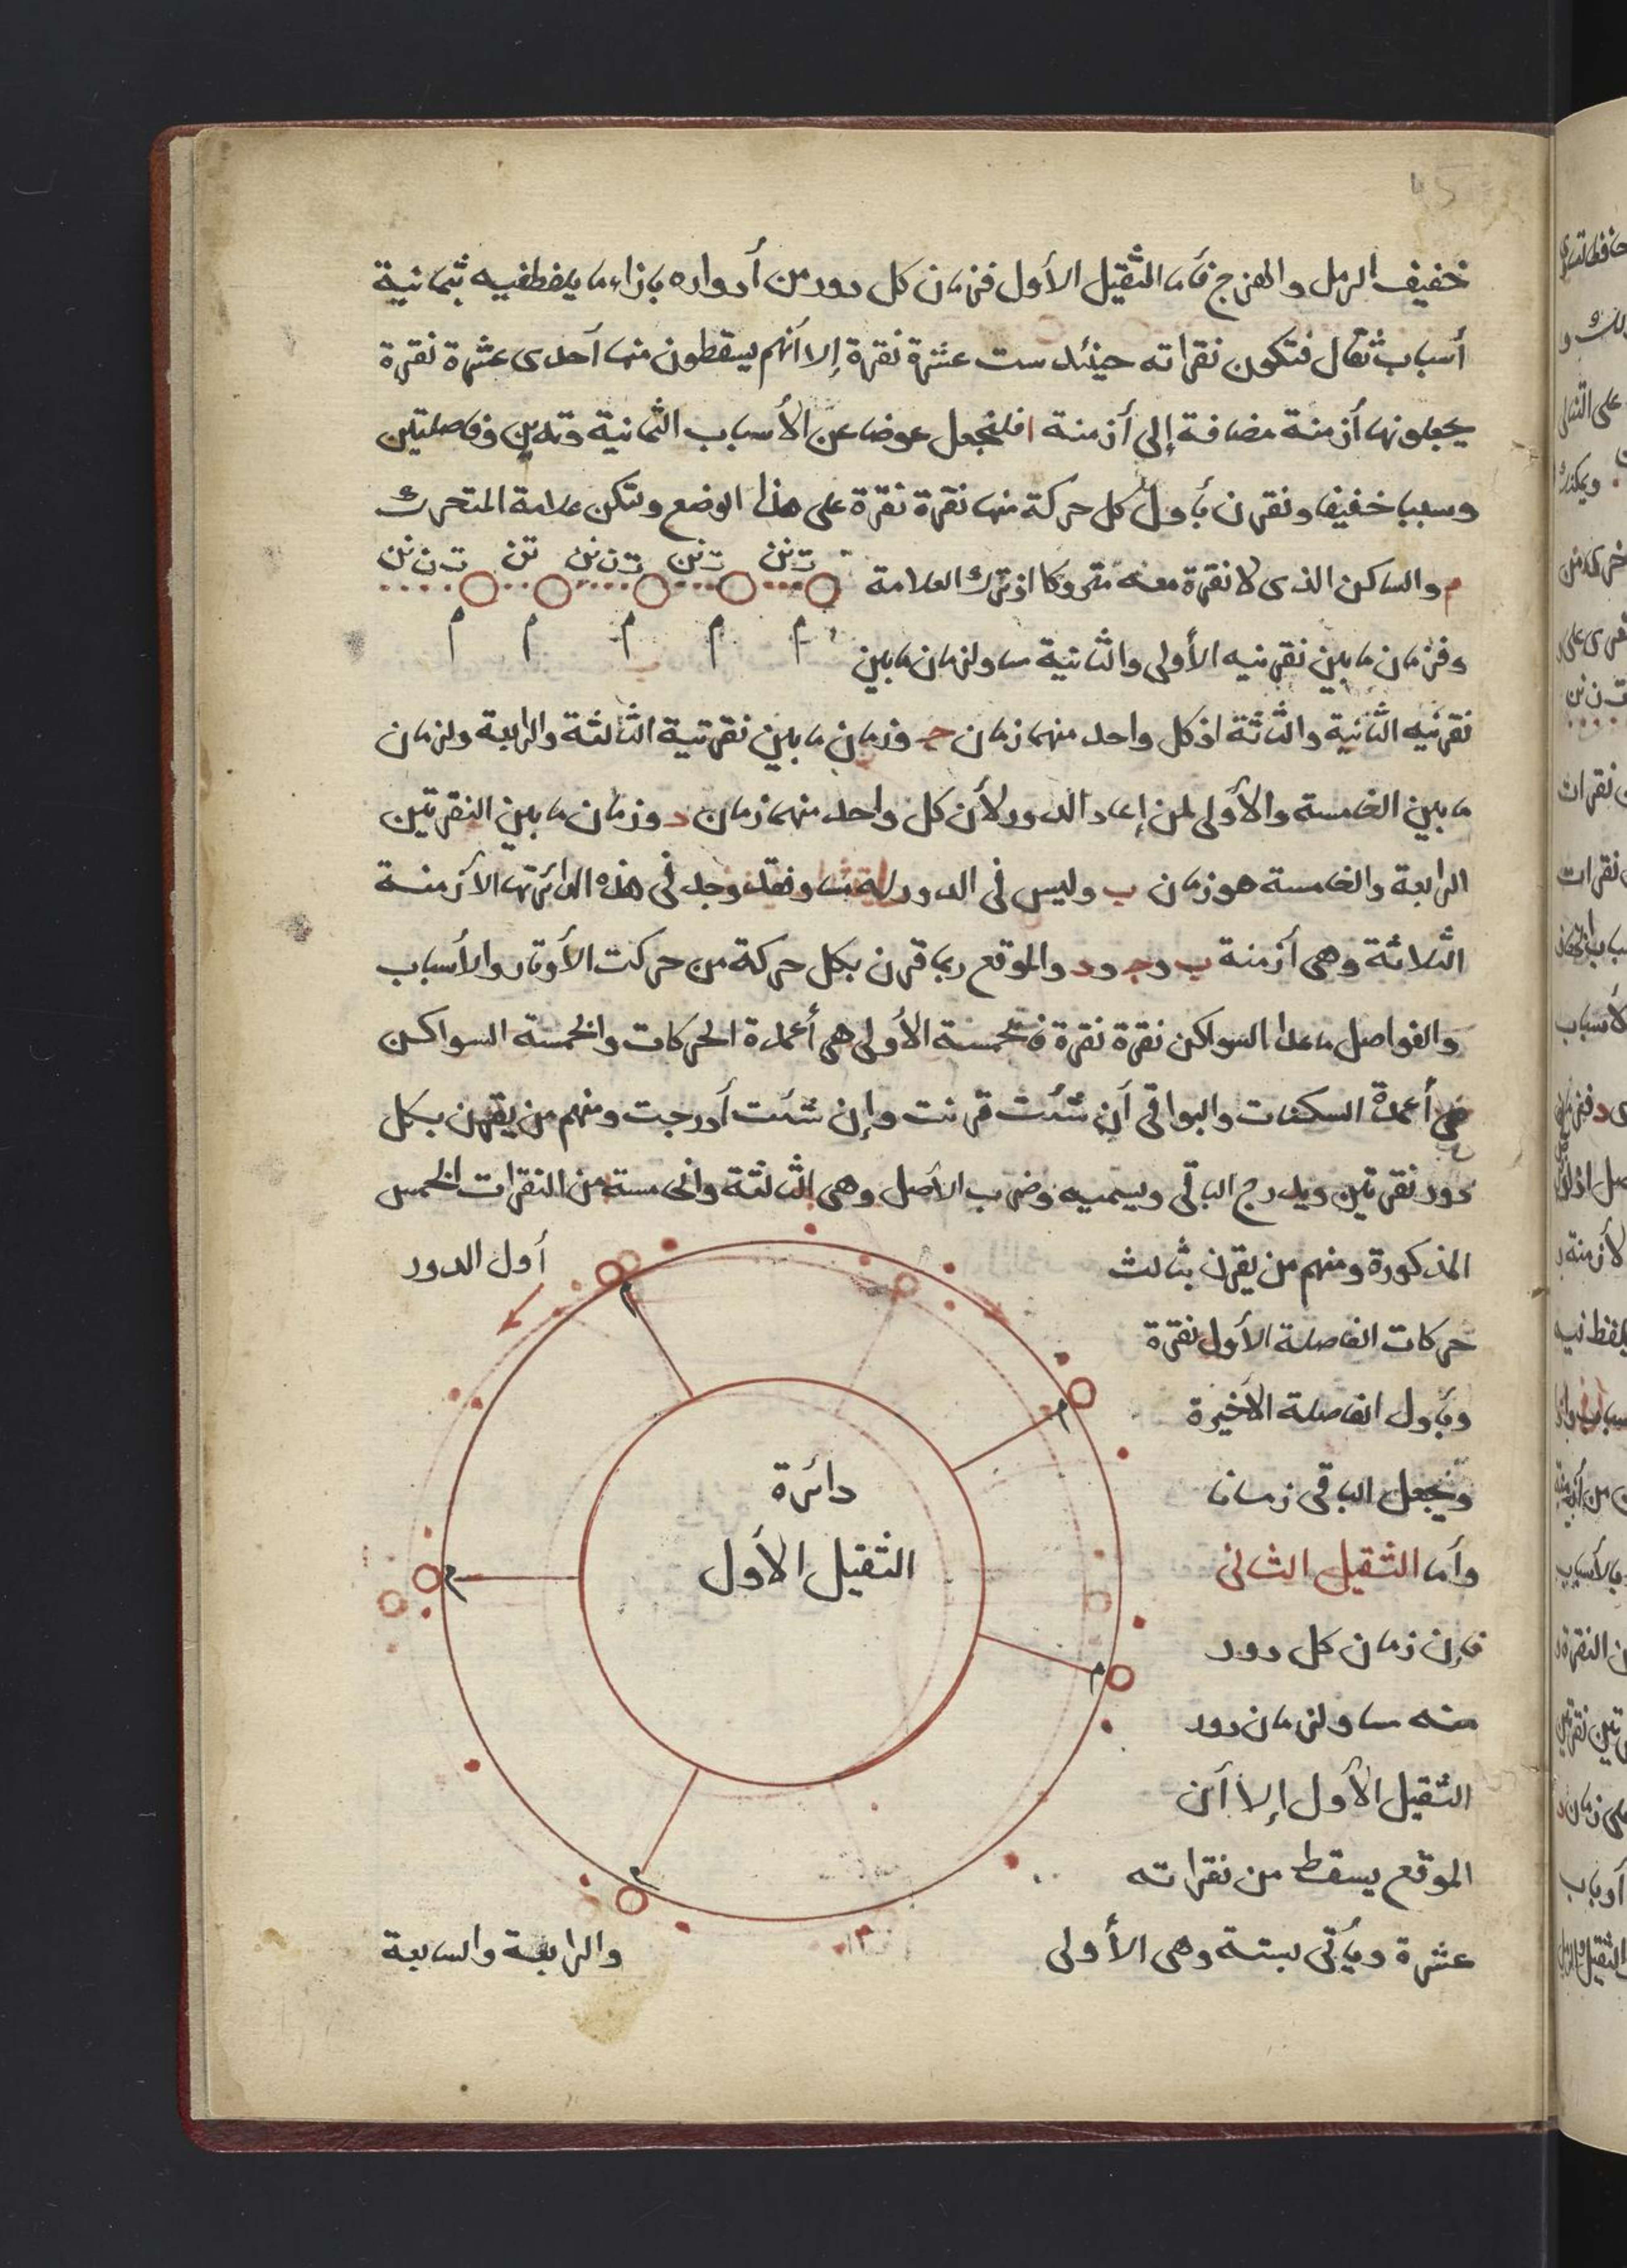 خفيف الرمل والهزج فأما الثقيل الأول فزمان كل دور من أدواره بازاء ما يلفظ فيه بثمانية
أسباب ثقال فتكون نقراته حينئد ست عشرة نقرة إلا أنهم يسقطون منها أحدى عشرة نقرة
يجعلونها أزمنة مضافة إلى أزمنة ا فلنجعل عوضا عن الأسباب الثمانية وتدين وفاصلتين
وسببا خفيفا ونقرن بأول كل حركة منها نقرة نقرة على هذا الوضع ولتكن علامة المتحرك
م والساكن الذى لا نقرة معه متروكا اذ ترك العلامة
ت نن ت نن ت ن نن تن ت ن نن
م م م م م
وفزمان ما بين نقرتيه الأولى والثانية مساو لزمان ما بين
نقرتيه الثانية والثاثة اذ كل واحد منهما زمان ج وزمان ما بين نقرتيه الثالثة والرابعة ولزمان
ما بين الخامسة والأولى لمن إعاد الدور لأن كل واحد منهما زمان د وزمان ما بين النقرتين
الرابعة والخامسة هو زمان ب وليس فى الدور له مساو فقد وجد فى هذه الدائرتها الأزمنة
الثلاثة وهى أزمنة ب وج ود والموقع ربما قرن بكل حركة من حركت الأوتار والأسباب
والفواصل ما عدا السواكن نقرة نقرة فخمسة الأولى هى أعمدة الحركات والخمسة السواكن
هى أعمدة السكنات والبواقى أن شئت قرنت وإن شئت أدرجت ومنهم من يقرن بكل
دور نقرتين ويدرج الباقى ويسميه وضرب الأصل وهى الثالثة والخامسة من النقرات الخمس
المذكورة ومنهم من يقرن بثالث
أول الدور
حركات الفاصلة الأول نقرة
وبأول الفاصلة الأخيرة
ونجعل الباقى زمانا
دائرة
الثقيل الأول
م م م م م
وأما الثقيل الثانى
فإن زمان كل دور
منه مساو لزمان دور
الثقيل الأول إلا أن
الموقع يسقط من نقراته
عشرة ويأتى بستة وهى الأولى
والرابعة والسابعة